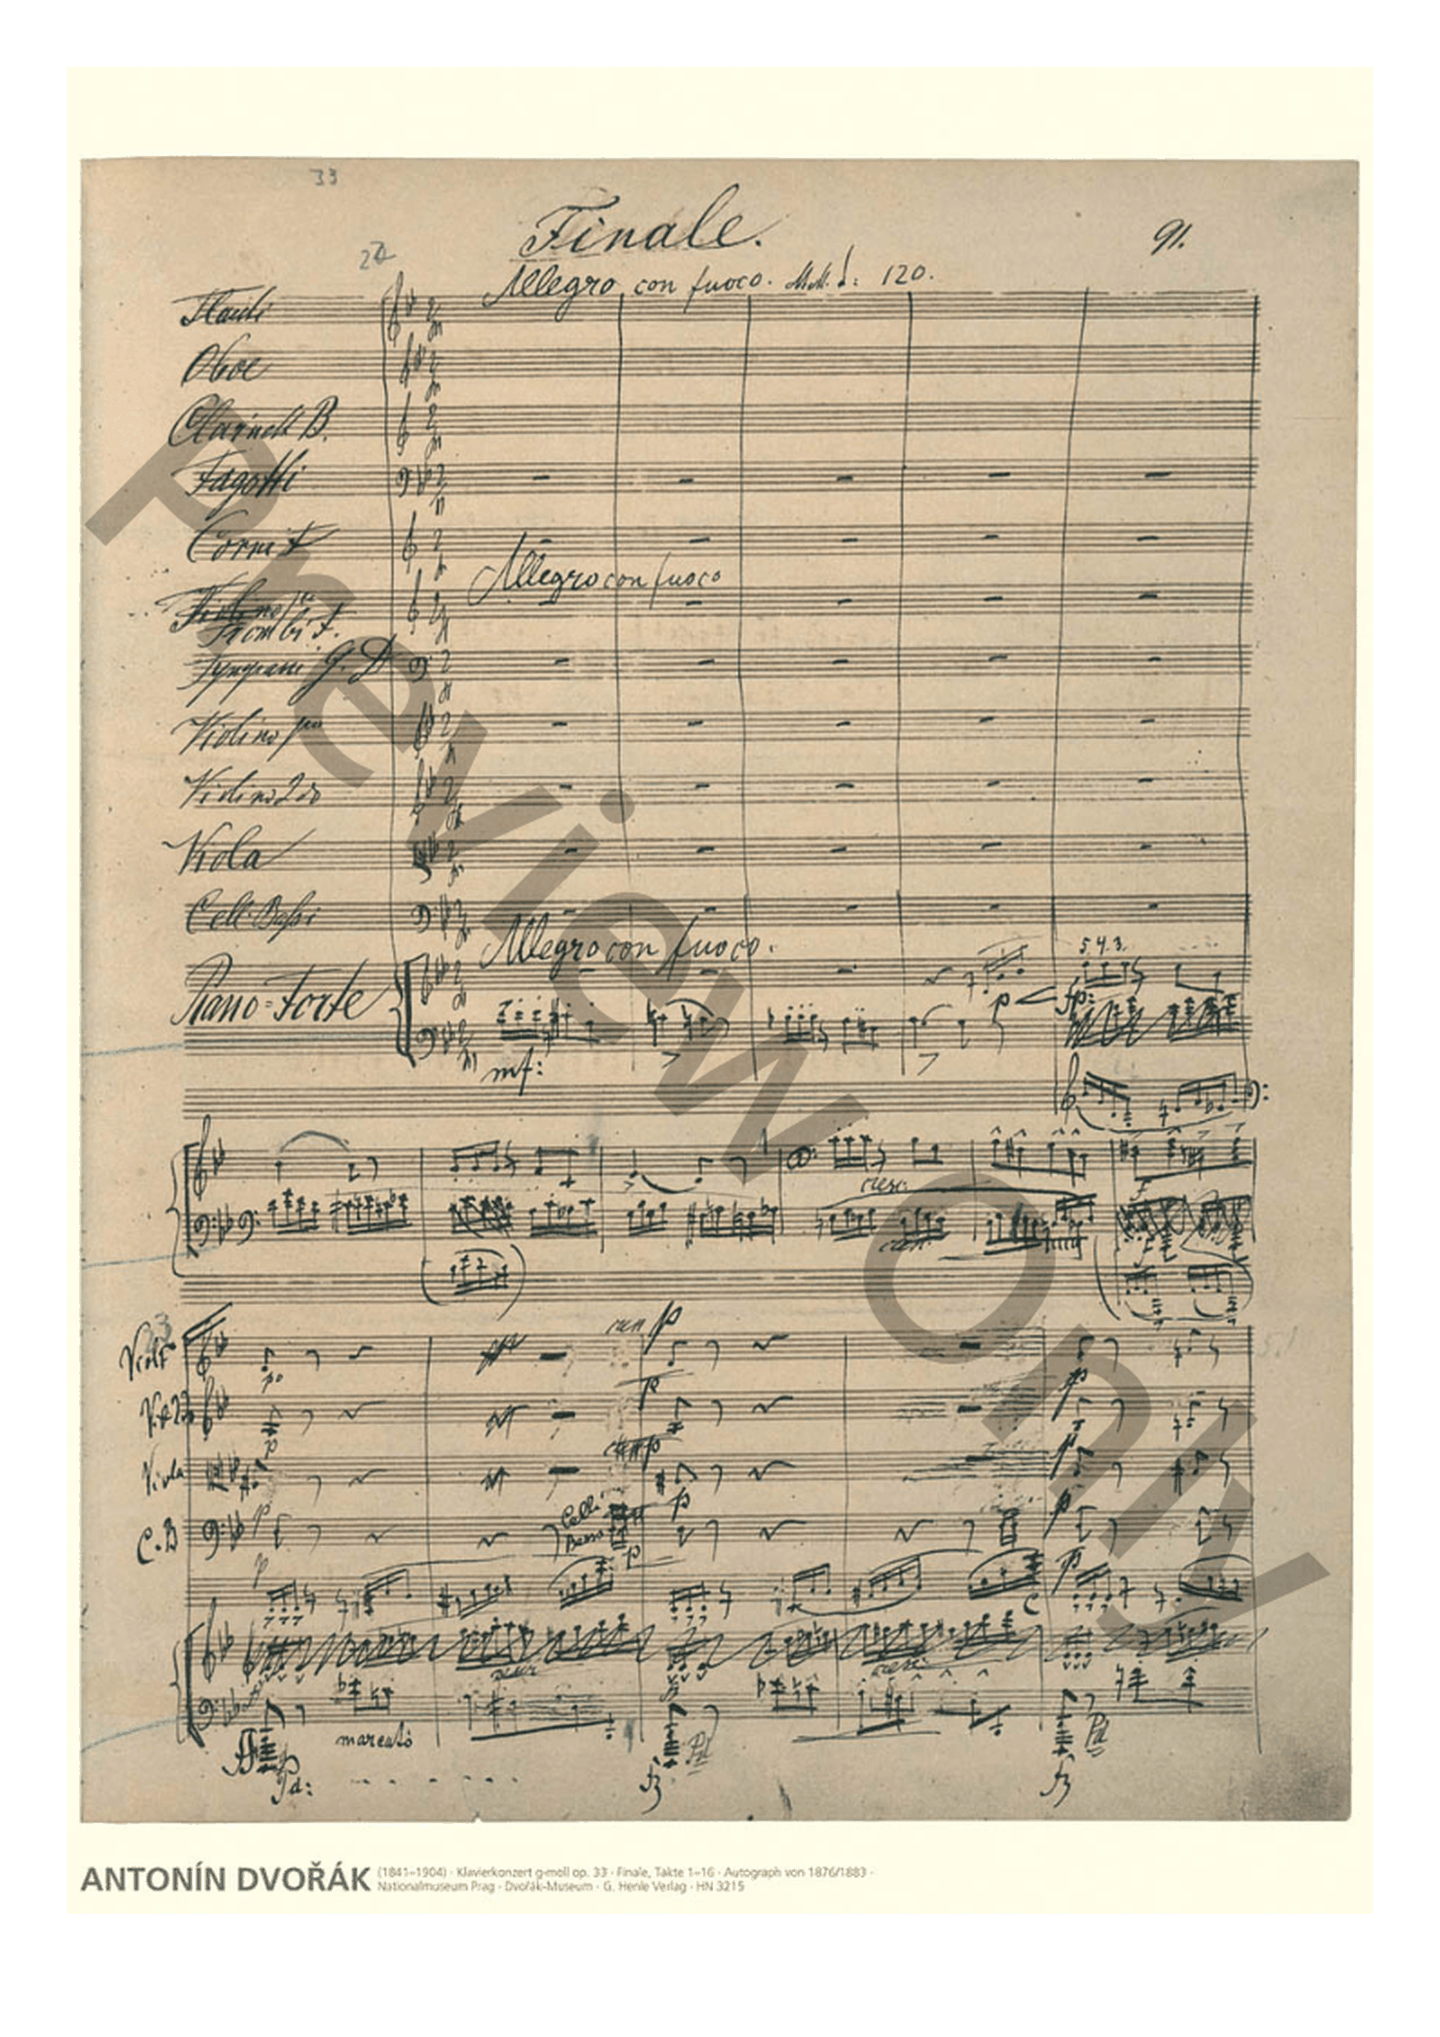 33
Finale.
91.
Allegro con fuoco. M.M. : 120.
Flauti
Oboe
Clarinett B.
Fagotti
Corni F
Allegro con fuoco
Trombi F.
Tympani G. D
Violino pmo
Violino 2do
Viola
Cell. Bassi
Allegro con fuoco.
Piano=Forte
5 4 3.
p
fp:
mf:
cresc.
f
p
Viola
C.B
Celli
Basso
p
marcato
fz
fz
Preview Only
ANTONÍN DVOŘÁK (1841–1904) · Klavierkonzert g-moll op. 33 · Finale, Takte 1–16 · Autograph von 1876/1883 ·
Nationalmuseum Prag · Dvořák-Museum · G. Henle Verlag · HN 3215